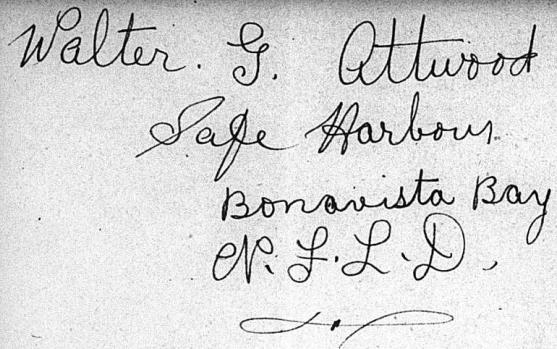 Walter. G. Attwood
Safe Harbour
Bonavista Bay
N.F.L.D.